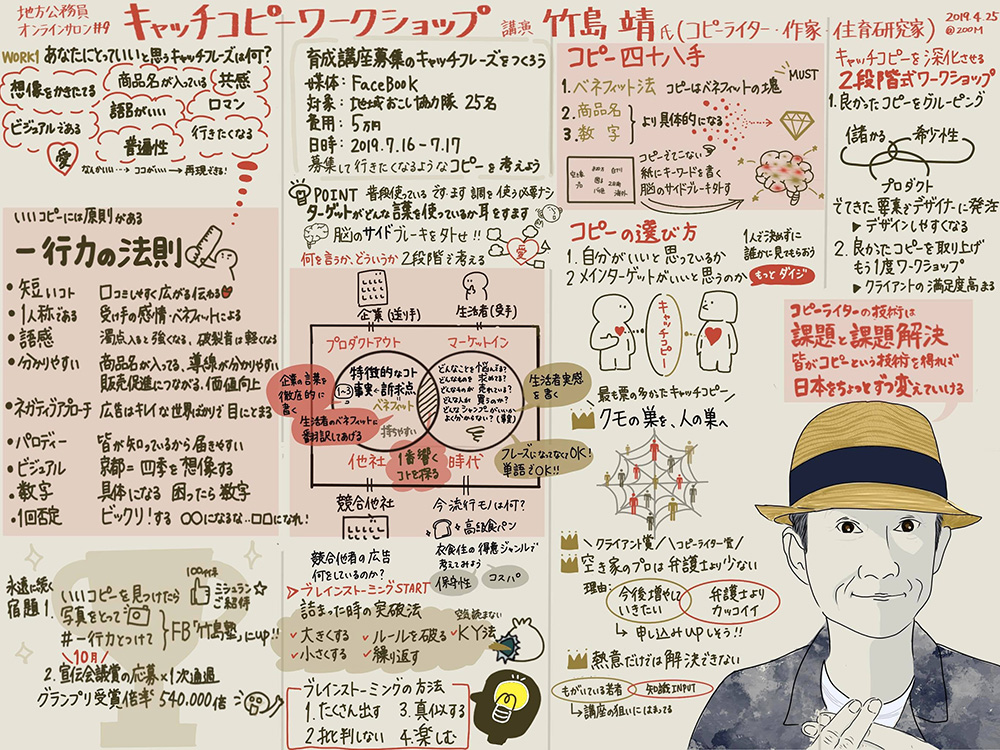 地方公務員
オンラインサロン#9
キャッチコピーワークショップ
講演 竹島 靖氏(コピーライター・作家・住育研究家)
2019.4.25
@ZOOM
WORK1 あなたにとっていいと思うキャッチフレーズは何?
想像をかきたてる
商品名が入っている
共感
語呂がいい
ロマン
ビジュアルである
普遍性
行きたくなる
愛
なんかいい…→ココがいい→再現できる!
いいコピーには原則がある
一行力の法則
・短いコト 口コミしやすく広がる伝わる
・1人称である 受け手の感情・ベネフィットによる
・語感 濁点入ると強くなる、破裂音は軽くなる
・分かりやすい 商品名が入ってる、導線が分かりやすい
販売促進につながる、価値向上
・ネガティブアプローチ 広告はキレイな世界ばかりで目にとまる
・パロディー 皆が知っているから届きやすい
・ビジュアル 京都=四季を想像する
・数字 具体になる 困ったら数字
・1回否定 ビックリ!する 〇〇になるな‥口口になれ!
永遠に続く
宿題
1. いいコピーを見つけたら
写真をとって
#一行力とつけて
FB「竹島塾」にUP!!
ミシュラン☆
ご招待
10月
2. 宣伝会議賞の応募×1次通過
グランプリ受賞倍率 540.000倍
育成講座募集のキャッチフレーズをつくろう
媒体:FaceBook
対象:地域おこし協力隊 25名
費用:5万
日時:2019.7.16-7.17
募集して行きたくなるようなコピーを考えよう
POINT 普段使っている です・ます 調を使う必要ナシ
ターゲットがどんな言葉を使っているか耳をすます
脳のサイドブレーキを外せ!!
何を言うか、どういうか 2段階で考える
愛
企業(送り手)
生活者(受手)
プロダクトアウト
マーケットイン
企業の言葉を
徹底的に
書く
特徴的なコト
1~3
事実や訴求点
ベネフィット
どんなことを悩んでる?
どんなものを求めてる?
どんなものが売れている?
どんな人が買うのか?
どんなシャンプーがいいか
よく分からない?
生活者実感
を書く
生活者のベネフィットに
翻訳してあげる
持ちやすい
他社
1番響く
コトを探る
時代
フレーズになってなくてOK!
単語でOK!!
競合他社
今流行モノは何?
高級食パン
競合他者の広告
何をしているのか?
衣食住の得意ジャンルで
考えてみよう
保守性
コスパ
ブレインストーミングSTART
詰まった時の突破法
空気読まない
✓大きくする ✓ルールを破る ✓KY法
✓小さくする ✓繰り返す
ブレインストーミングの方法
1.たくさん出す 3.真似する
2.批判しない 4.楽しむ
コピー四十八手
1.ベネフィット法 コピーはベネフィットの塊
MUST
2.商品名
3.数字
より具体的になる
コピーでてこない
紙にキーワードを書く
脳のサイドブレーキ外す
コピーの選び方
1.自分がいいと思っているか
2メインターゲットがいいと思うのか
もっとダイジ
1人で決めずに
誰かに見てもらおう
キャッチコピー
最も票の多かったキャッチコピー
クモの巣を、人の巣へ
クライアント賞
コピーライター賞
空き家のプロは弁護士より少ない
理由:
今後増やして
いきたい
弁護士より
カッコイイ
↳申し込みUPしそう!!
熱意だけでは解決できない
もがいている若者
知識INPUT
↳講座の狙いにはまってる
キャッチコピーを深化させる
2段階式ワークショップ
1.良かったコピーをグルーピング
儲かる
希少性
プロダクト
でてきた要素をデザイナーに発注
▶デザインしやすくなる
2.良かったコピーを取り上げ
もう1度ワークショップ
▶クライアントの満足度高まる
コピーライターの技術は
課題と課題解決
皆がコピーという技術を得れば
日本をちょっとずつ変えていける